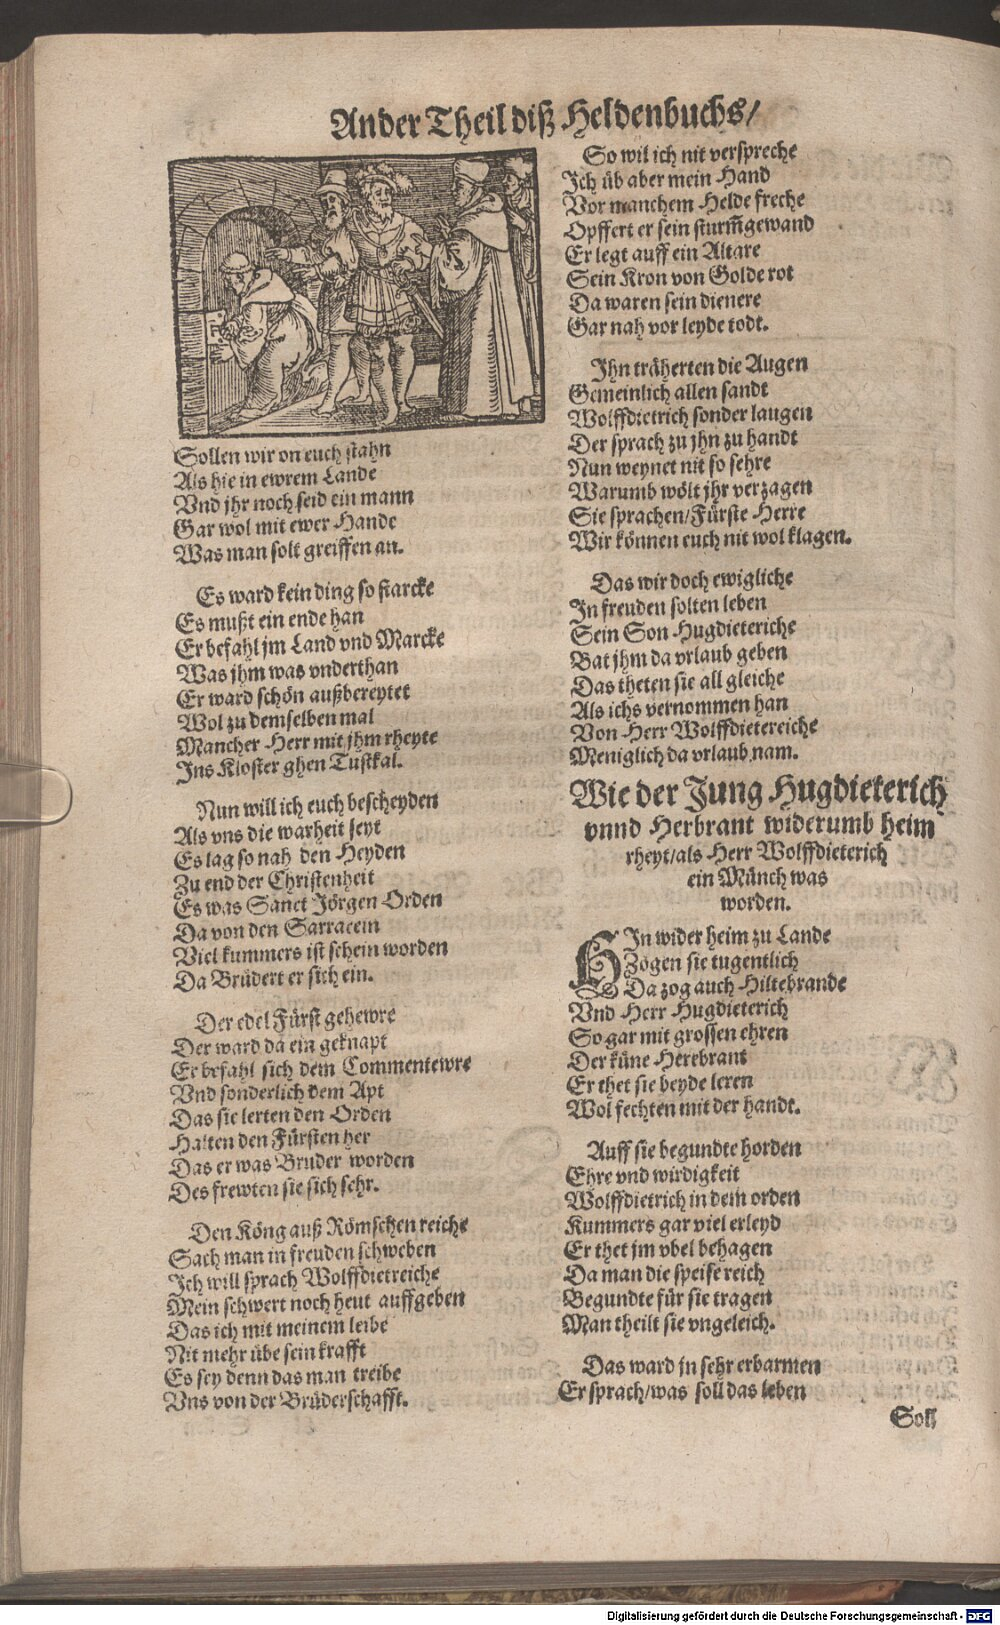 Ander Theil diß Heldenbuchs/
Sollen wir on euch stahn
Als hie in ewrem Lande
Vnd jhr noch seid ein mann
Gar wol mit ewer Hande
Was man solt greiffen an.
Es ward kein ding so starcke
Es mußt ein ende han
Er befahl jm Land vnd Marcke
Was jhm was vnderthan
Er ward schön außbereytet
Wol zu demselben mal
Mancher Herr mit jhm rheyte
Ins Kloster ghen Tustkal.
Nun will ich euch bescheyden
Als vns die warheit seyt
Es lag so nah den Heyden
Zu end der Christenheit
Es was Sanct Jörgen Orden
Da von den Sarracein
Viel kummers ist schein worden
Da Brüdert er sich ein.
Der edel Fürst gehewre
Der ward da ein geknapt
Er befahl sich dem Commentewre
Vnd sonderlich dem Apt
Das sie lerten den Orden
Halten den Fürsten her
Das er was Bruder worden
Des frewten sie sich sehr.
Den Köng auß Römschen reiche
Sach man in freuden schweben
Ich will sprach Wolffdietreiche
Mein schwert noch heut auffgeben
Das ich mit meinem leibe
Nit mehr übe sein krafft
Es sey denn das man treibe
Vns von der Brüderschafft.
So wil ich nit verspreche
Ich üb aber mein Hand
Vor manchem Helde freche
Opffert er sein sturm̃gewand
Er legt auff ein Altare
Sein Kron von Golde rot
Da waren sein dienere
Gar nah vor leyde todt.
Ihn träherten die Augen
Gemeinlich allen sandt
Wolffdietrich sonder laugen
Der sprach zu jhn zu handt
Nun weynet nit so sehre
Warumb wölt jhr verzagen
Sie sprachen/Fürste Herre
Wir können euch nit wol klagen.
Das wir doch ewigliche
In freuden solten leben
Sein Son Hugdieteriche
Bat jhm da vrlaub geben
Das theten sie all gleiche
Als ichs vernommen han
Von Herr Wolffdietereiche
Meniglich da vrlaub nam.
Wie der Jung Hugdieterich
vnnd Herbrant widerumb heim
rheyt/als Herr Wolffdieterich
ein Münch was
worden.
HIn wider heim zu Lande
Zogen sie tugentlich
Da zog auch Hiltebrande
Vnd Herr Hugdieterich
So gar mit grossen ehren
Der küne Herebrant
Er thet sie beyde leren
Wol fechten mit der handt.
Auff sie begundte horden
Ehre vnd wirdigkeit
Wolffdietrich in dem orden
Kummers gar viel erleyd
Er thet jm vbel behagen
Da man die speise reich
Begundte für sie tragen
Man theilt sie vngeleich.
Das ward jn sehr erbarmen
Er sprach/was soll das leben
Soll
Digitalisierung gefördert durch die Deutsche Forschungsgemeinschaft - DFG